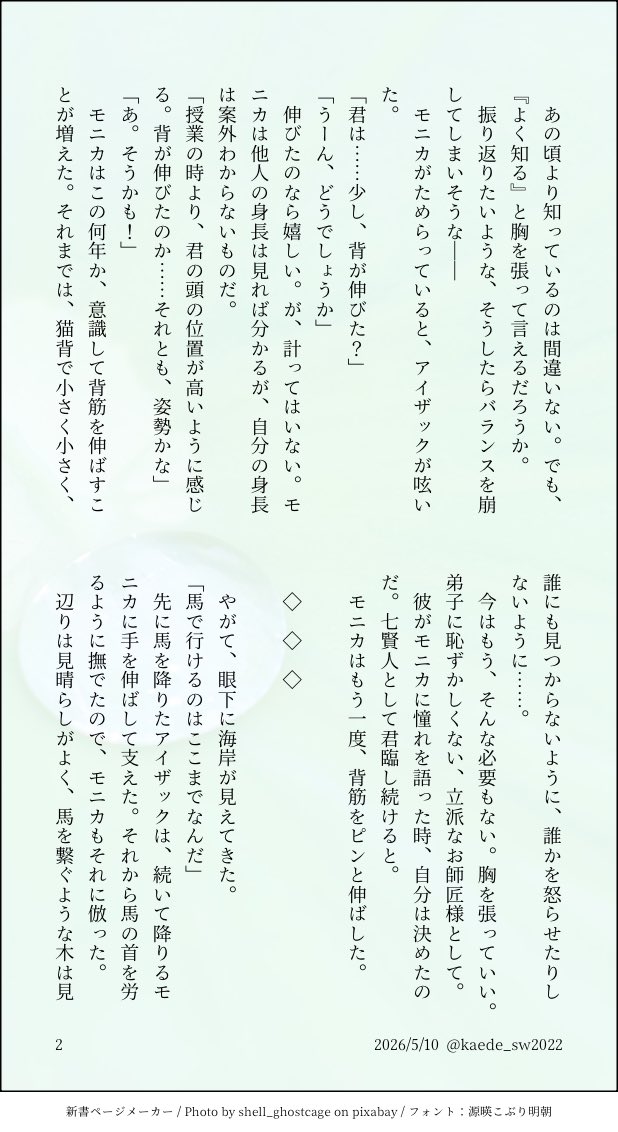 あの頃より知っているのは間違いない。でも、
『よく知る』と胸を張って言えるだろうか。
振り返りたいような、そうしたらバランスを崩
してしまいそうな――
モニカがためらっていると、アイザックが呟い
た。
「君は……少し、背が伸びた？」
「うーん、どうでしょうか」
伸びたのなら嬉しい。が、計ってはいない。モ
ニカは他人の身長は見れば分かるが、自分の身長
は案外わからないものだ。
「授業の時より、君の頭の位置が高いように感じ
る。背が伸びたのか……それとも、姿勢かな」
「あ。そうかも！」
モニカはこの何年か、意識して背筋を伸ばすこ
とが増えた。それまでは、猫背で小さく小さく、
誰にも見つからないように、誰かを怒らせたりし
ないように……。
今はもう、そんな必要もない。胸を張っていい。
弟子に恥ずかしくない、立派なお師匠様として。
彼がモニカに憧れを語った時、自分は決めたの
だ。七賢人として君臨し続けると。
モニカはもう一度、背筋をピンと伸ばした。
◇ ◇ ◇
やがて、眼下に海岸が見えてきた。
「馬で行けるのはここまでなんだ」
先に馬を降りたアイザックは、続いて降りるモ
ニカに手を伸ばして支えた。それから馬の首を労
るように撫でたので、モニカもそれに倣った。
辺りは見晴らしがよく、馬を繋ぐような木は見
2026/5/10 @kaede_sw2022
2
新書ページメーカー / Photo by shell_ghostcage on pixabay / フォント：源暎こぶり明朝